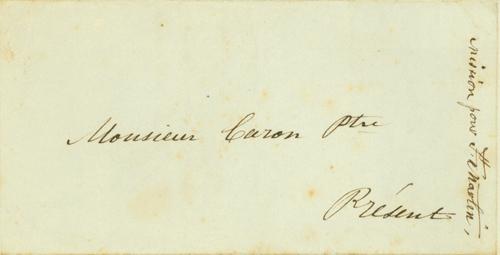 Monsieur Caron Ptre
Présent
mission pour St Martin,